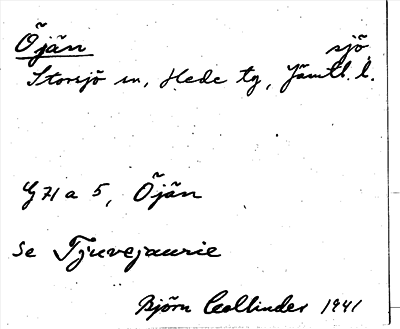 Öjän sjö
Storsjö sn, Hede tg, Jämtl. l.
G 71 a 5, Öjän
se Tjuvejaurie
Björn Collinder 1941